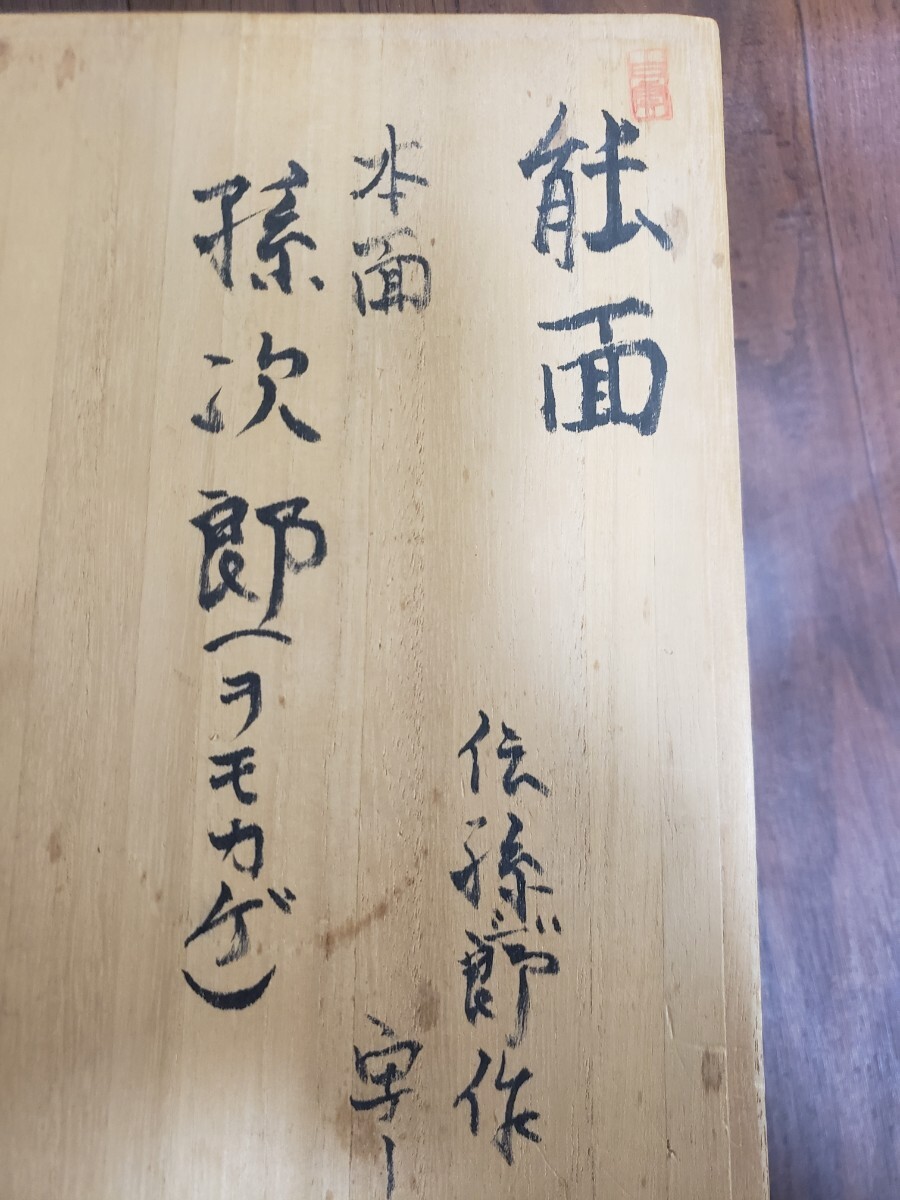 能面
伝孫郎作
本面 写し
孫次郎(ヲモカゲ)